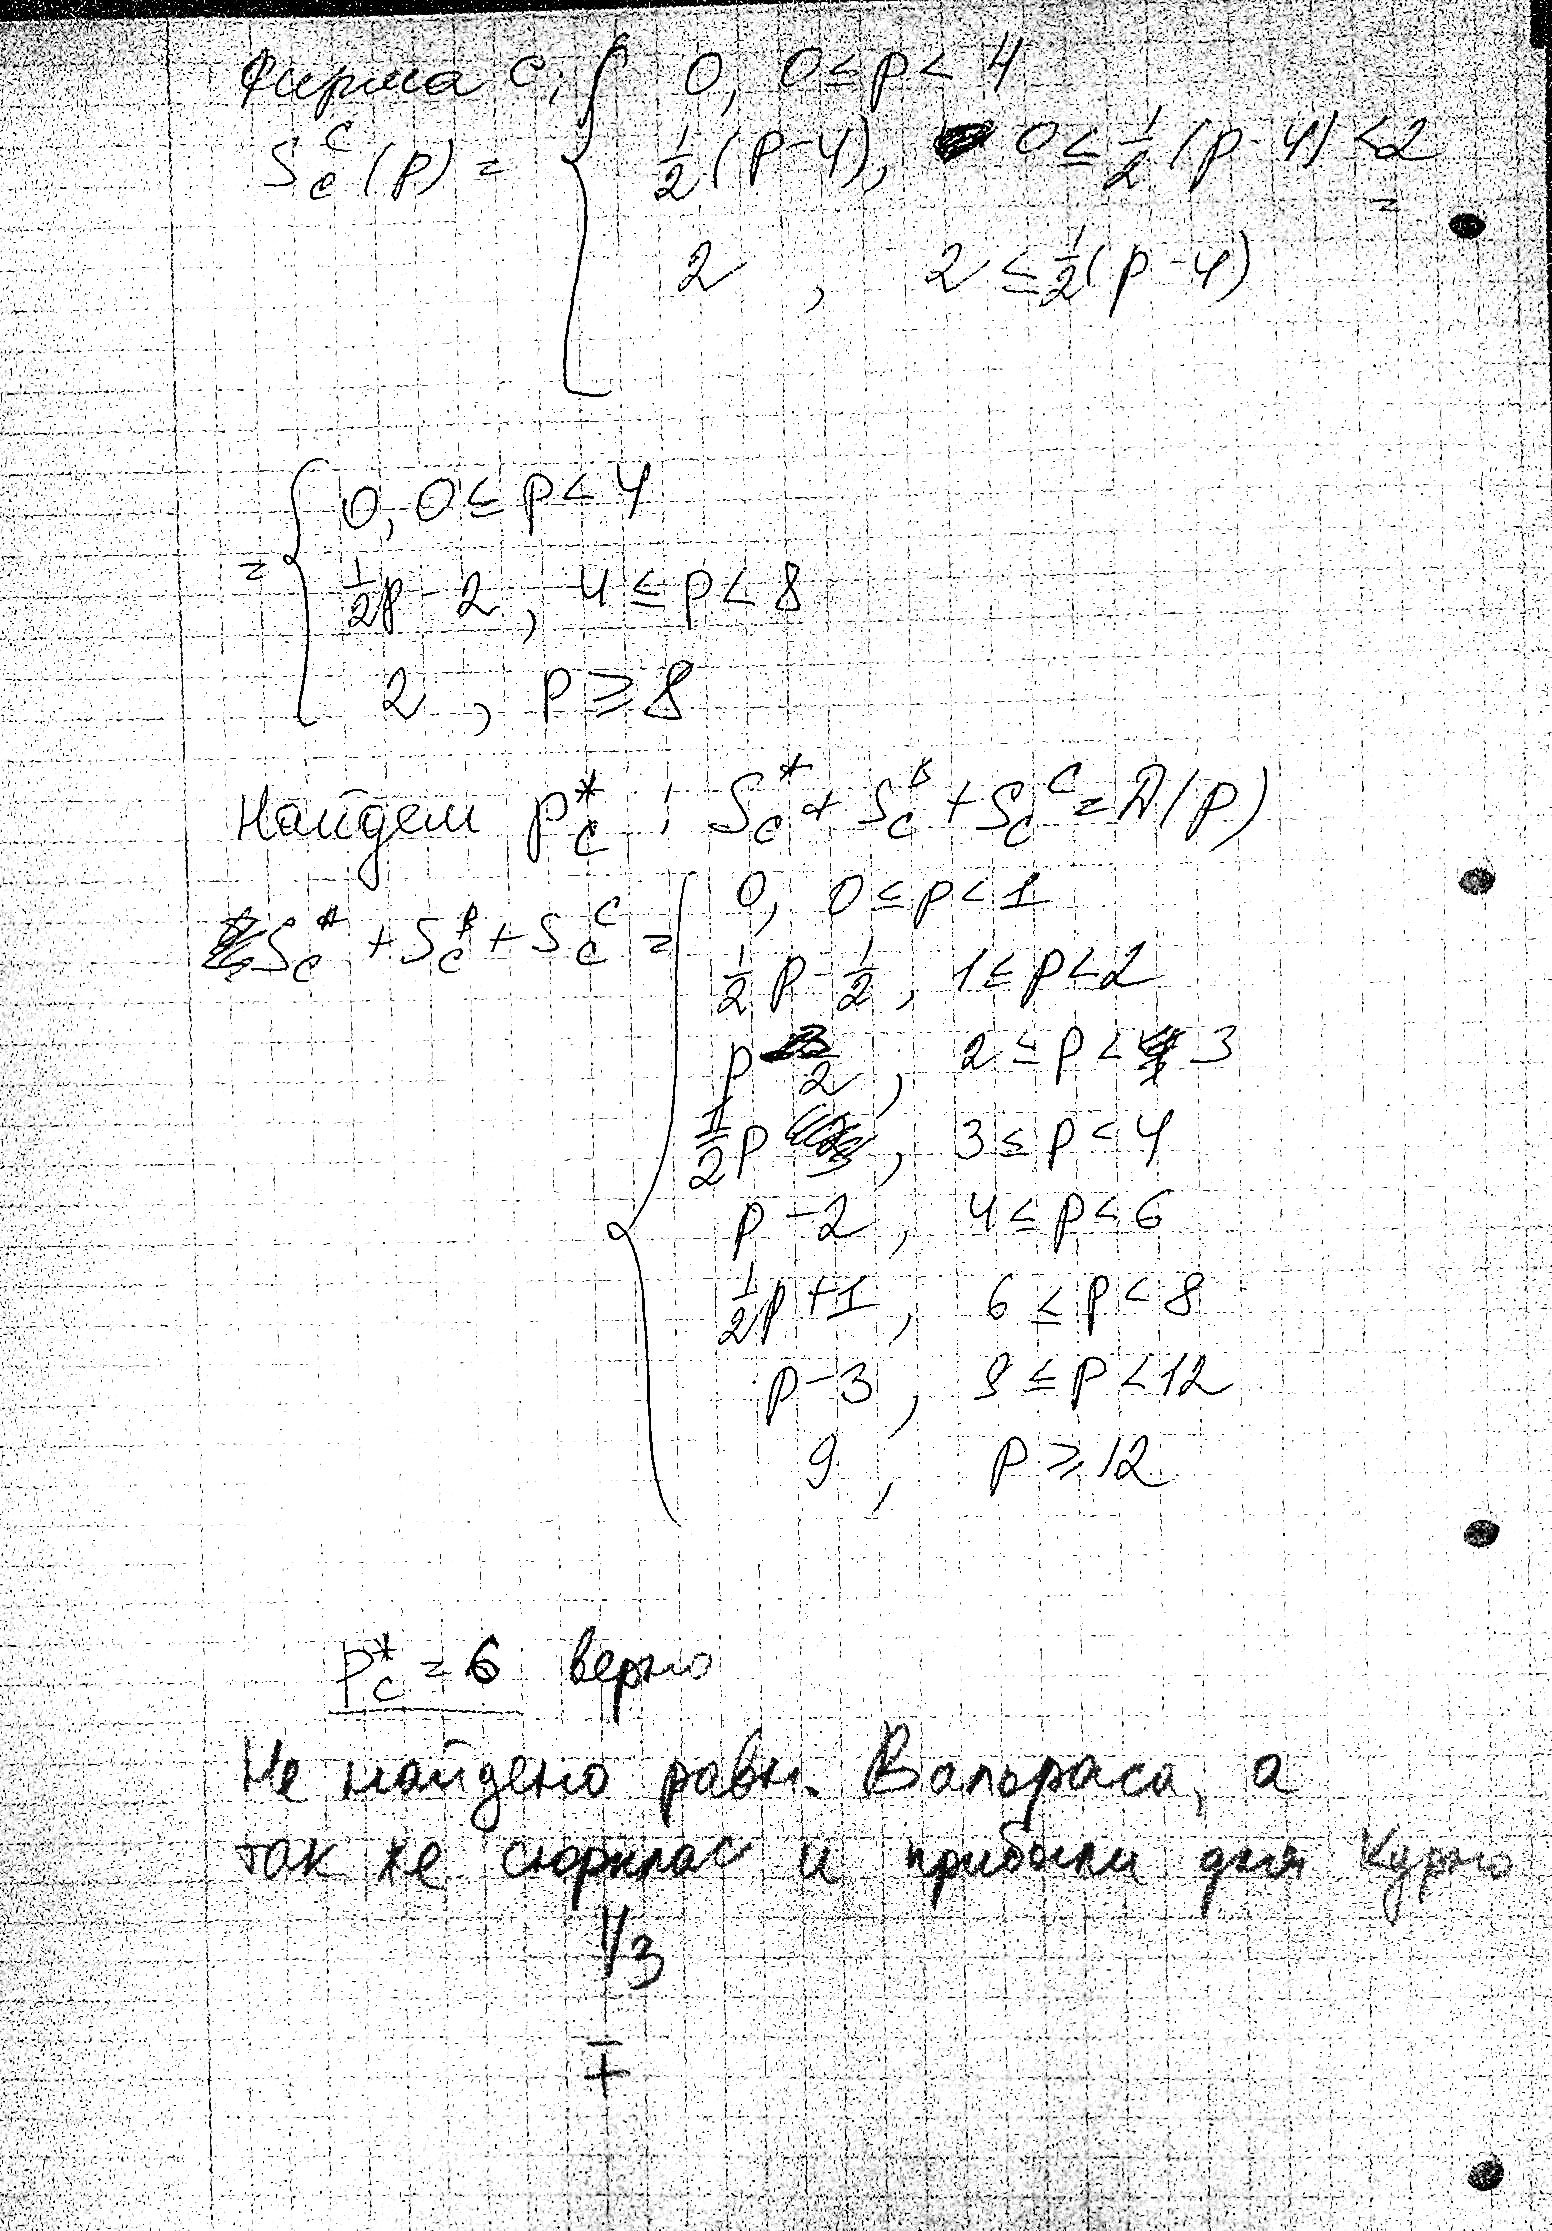 Фирма C: { 0, 0 ≤ p < 4
S_c^C(p) = { ½(p-4), 0 ≤ ½(p-4) < 2 =
2, 2 ≤ ½(p-4)
= { 0, 0 ≤ p < 4
½p - 2, 4 ≤ p < 8
2, p ≥ 8
Найдем p_c^* : S_c^A + S_c^B + S_c^C = D(p)
S_c^A + S_c^B + S_c^C = { 0, 0 ≤ p < 1
½p - ½, 1 ≤ p < 2
p - 3/2, 2 ≤ p < 3
½p, 3 ≤ p < 4
p - 2, 4 ≤ p < 6
½p + 1, 6 ≤ p < 8
p - 3, 8 ≤ p < 12
9, p ≥ 12
p_c^* = 6 верно
Не найдено равн. Вальраса, а
так же сюрплас и прибыли для Курно
1/3
∓